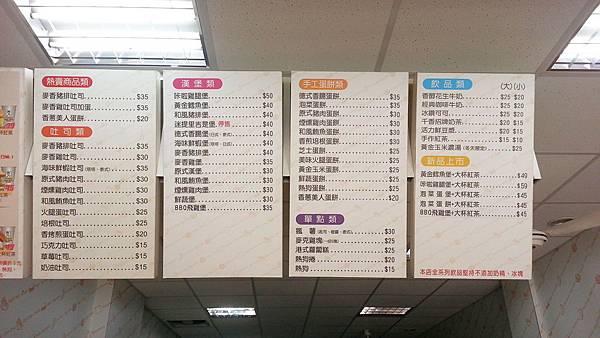 熱賣商品類
麥香豬排吐司 $35
麥香雞吐司加蛋 $35
香蔥美人蛋餅 $20
吐司類
麥香豬排吐司 $35
麥香雞吐司 $30
海味鮮蝦吐司 $35
原式豬肉吐司 $30
煙燻雞肉吐司 $30
和風鮪魚吐司 $30
火腿蛋吐司 $25
培根吐司 $25
香烤煎蛋吐司 $20
巧克力吐司 $15
草莓吐司 $15
奶油吐司 $15
漢堡類
咔啦雞腿堡 $50
黃金鱈魚堡 $40
和風豬排堡 $40
米提里吉是堡 停售
德式香腸堡 $40
海味鮮蝦堡 $40
麥香豬排堡 $40
麥香雞堡 $35
原式漢堡 $30
和風鮪魚堡 $30
煙燻雞肉堡 $30
鮮蔬堡 $30
BBQ飛雞堡 $35
手工蛋餅類
德式香腸蛋餅 $35
泡菜蛋餅 $35
原式豬肉蛋餅 $30
煙燻雞肉蛋餅 $30
和風鮪魚蛋餅 $30
香煎培根蛋餅 $25
芝士蛋餅 $25
美味火腿蛋餅 $25
黃金玉米蛋餅 $25
鮮蔬蛋餅 $25
熱狗蛋餅 $25
香蔥美人蛋餅 $20
單點類
麥克雞塊 $25
港式蘿蔔糕 $25
熱狗捲 $20
熱狗 $15
飲品類 (大)(小)
香醇花生牛奶 $25 $20
經典咖啡牛奶 $25 $20
冰鑽可可 $25 $20
千香招牌奶茶 $20 $15
活力鮮豆漿 $20 $15
手作紅茶 $15 $10
黃金玉米濃湯 $25 $20
新品上市
黃金鱈魚堡+大杯紅茶 $49
咔啦雞腿堡+大杯紅茶 $59
泡菜蛋堡+大杯紅茶 $45
泡菜蛋餅+大杯紅茶 $45
BBQ飛雞堡+大杯紅茶 $45
本店全系列飲品堅持不添加奶精、冰塊